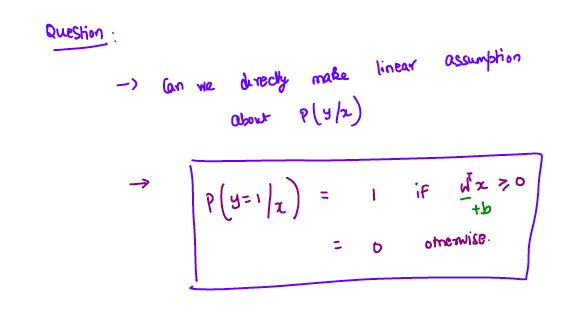 Question :
-> Can we directly make linear assumption
about P(y/x)
-> P(y=1/x) = 1 if wᵀx ≥ 0
+b
= 0 otherwise.